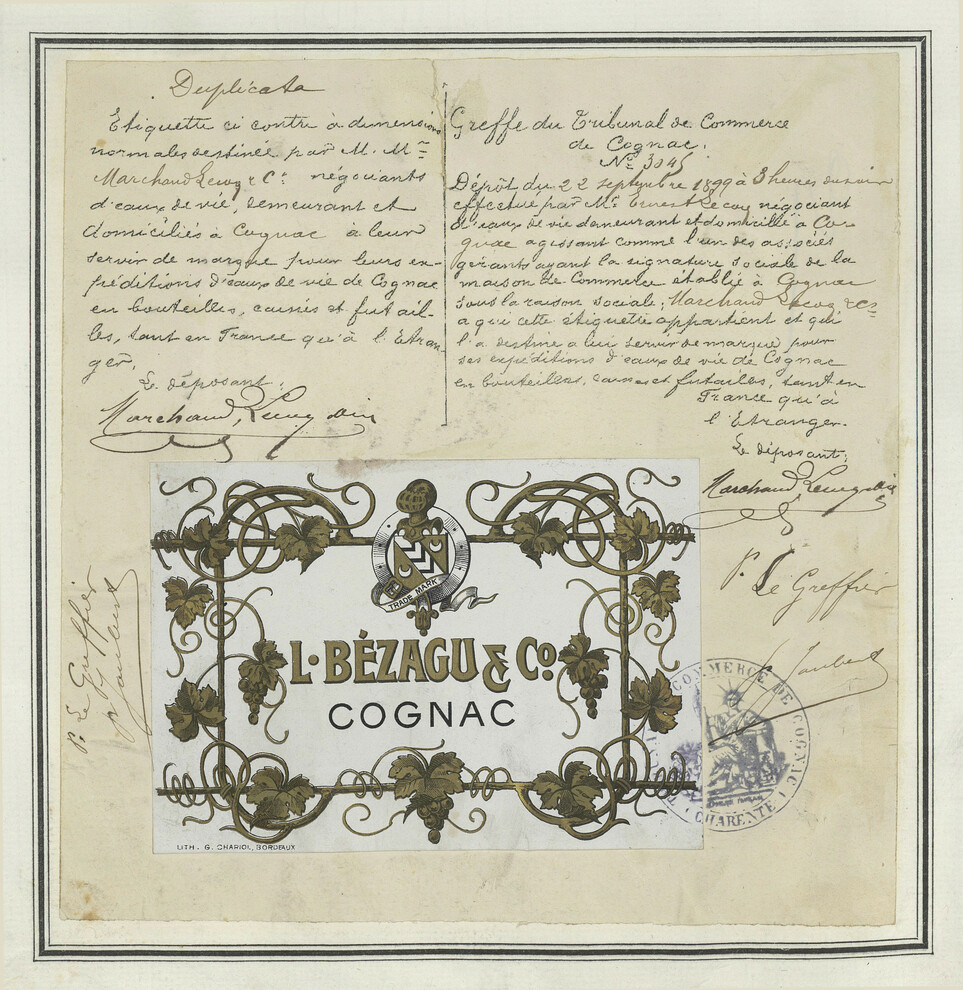 Duplicata
Etiquette ci contre à dimensions
normales destinée par M. Mrs
Marchand Lecoq & Cie négociants
d'eaux de vie, demeurant et
domiciliés à Cognac a leur
servir de marque pour leurs ex-
péditions d'eaux de vie de Cognac
en bouteilles, caisses et futail-
les, tant en France qu'à l'Etran
ger.
Le déposant:
Marchand, Lecoq & Cie
Greffe du Tribunal de Commerce
de Cognac.
No 3045
Dépôt du 22 septembre 1899 à 3 heures du soir
effectué par Mr Ernest Lecoq négociant
d'eaux de vie demeurant et domicilié à Co-
gnac agissant comme l'un des associés
gérants ayant la signature sociale de la
maison de Commerce établie à Cognac
sous la raison sociale: Marchand Lecoq & Cie
a qui cette étiquette appartient et qui
l'a destiné a lui servir de marque pour
ses expéditions d'eaux de vie de Cognac
en bouteilles, caisses et futailles, tant en
France qu'à
l'Etranger.
Le déposant:
Marchand Lecoq & Cie
P. Le Greffier
Jaubert
P. Le Greffier
Jaubert
TRADE MARK
L. BÉZAGU & Co.
COGNAC
LITH. G. CHARIOL, BORDEAUX
COMMERCE DE COGNAC
CHARENTE